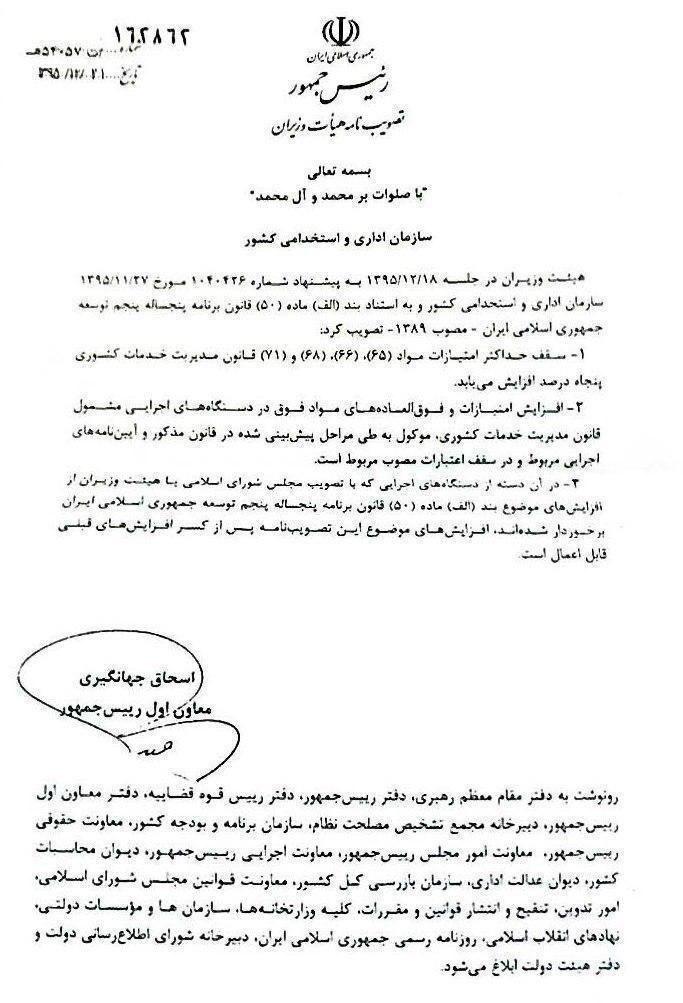 ۱۶۲۸۶۲
شماره.........۵۴۰۵۷هـ
تاریخ....۱۳۹۵/۱۲/۲۱
جمهوری اسلامی ایران
رئیس جمهور
تصویب نامه هیأت وزیران
بسمه تعالی
"با صلوات بر محمد و آل محمد"
سازمان اداری و استخدامی کشور
هیئت وزیران در جلسه ۱۳۹۵/۱۲/۱۸ به پیشنهاد شماره ۱۰۴۰۴۲۶ مورخ ۱۳۹۵/۱۱/۲۷
سازمان اداری و استخدامی کشور و به استناد بند (الف) ماده (۵۰) قانون برنامه پنجساله پنجم توسعه
جمهوری اسلامی ایران - مصوب ۱۳۸۹- تصویب کرد:
۱- سقف حداکثر امتیازات مواد (۶۵)، (۶۶)، (۶۸) و (۷۱) قانون مدیریت خدمات کشوری
پنجاه درصد افزایش می‌یابد.
۲- افزایش امتیازات و فوق‌العاده‌های مواد فوق در دستگاه‌های اجرایی مشمول
قانون مدیریت خدمات کشوری، موکول به طی مراحل پیش‌بینی شده در قانون مذکور و آیین‌نامه‌های
اجرایی مربوط و در سقف اعتبارات مصوب مربوط است.
۳- در آن دسته از دستگاه‌های اجرایی که با تصویب مجلس شورای اسلامی یا هیئت وزیران از
افزایش‌های موضوع بند (الف) ماده (۵۰) قانون برنامه پنجساله پنجم توسعه جمهوری اسلامی ایران
برخوردار شده‌اند، افزایش‌های موضوع این تصویب‌نامه پس از کسر افزایش‌های قبلی
قابل اعمال است.
اسحاق جهانگیری
معاون اول رییس‌جمهور
رونوشت به دفتر مقام معظم رهبری، دفتر رییس‌جمهور، دفتر رییس قوه قضاییه، دفتر معاون اول
رییس‌جمهور، دبیرخانه مجمع تشخیص مصلحت نظام، سازمان برنامه و بودجه کشور، معاونت حقوقی
رییس‌جمهور، معاونت امور مجلس رییس‌جمهور، معاونت اجرایی رییس‌جمهور، دیوان محاسبات
کشور، دیوان عدالت اداری، سازمان بازرسی کل کشور، معاونت قوانین مجلس شورای اسلامی،
امور تدوین، تنقیح و انتشار قوانین و مقررات، کلیه وزارتخانه‌ها، سازمان ها و مؤسسات دولتی،
نهادهای انقلاب اسلامی، روزنامه رسمی جمهوری اسلامی ایران، دبیرخانه شورای اطلاع‌رسانی دولت و
دفتر هیئت دولت ابلاغ می‌شود.